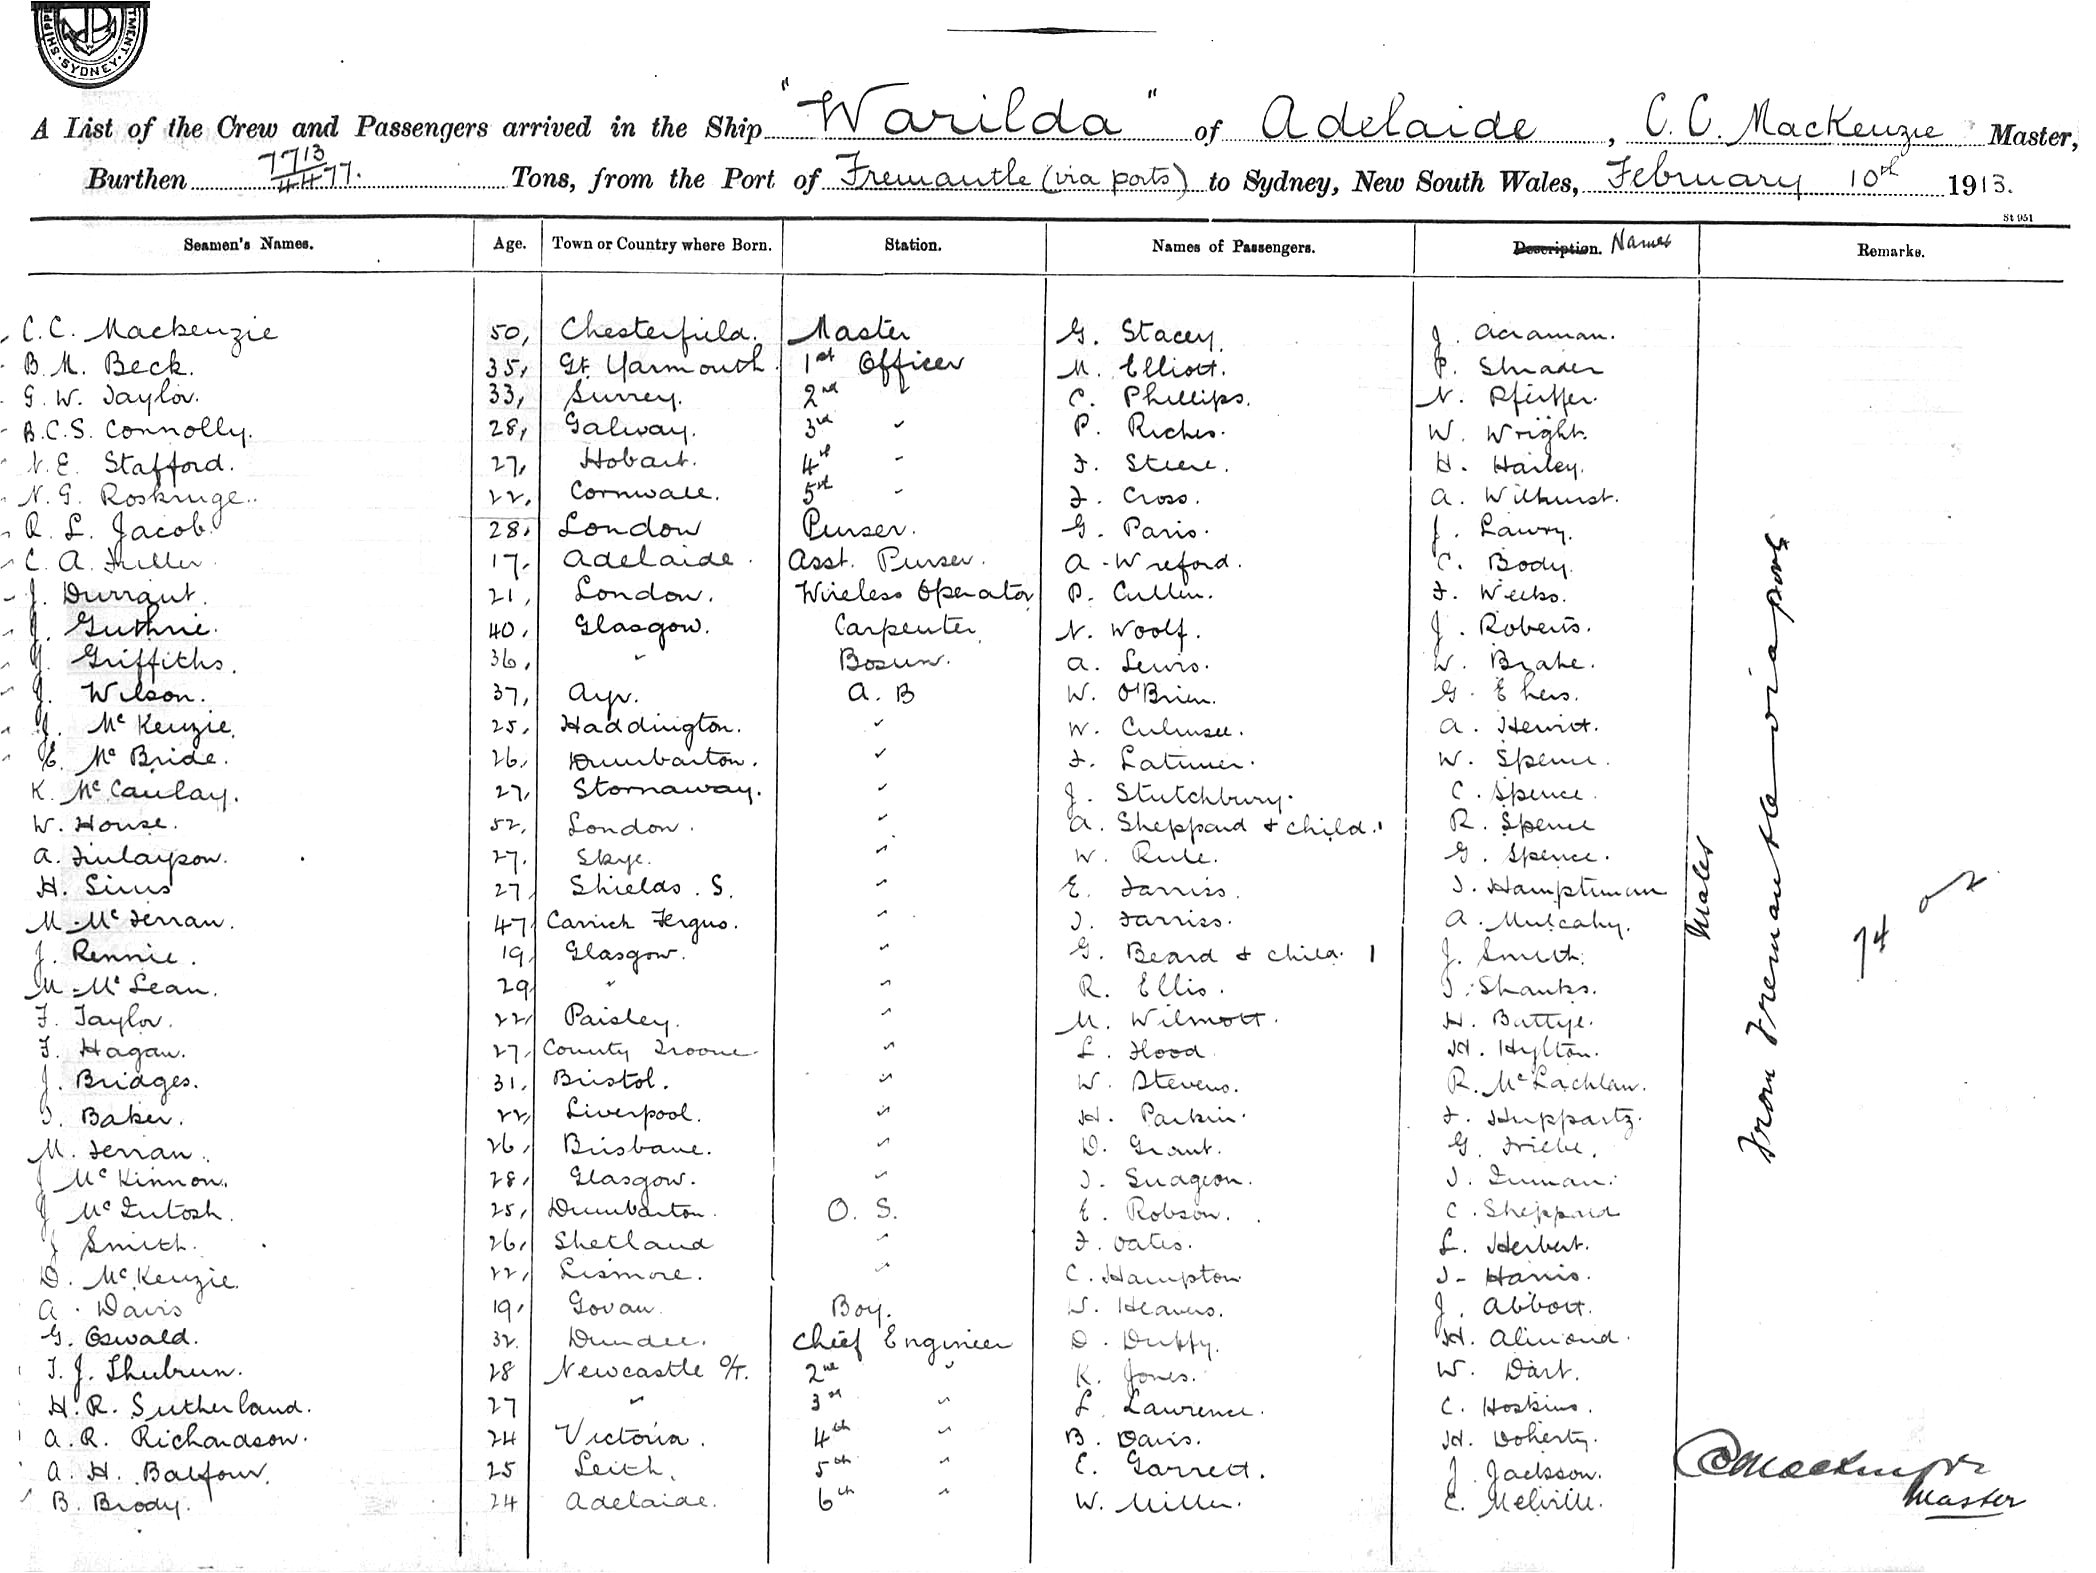 SHIPP MENT. SYDNEY.
A List of the Crew and Passengers arrived in the Ship "Warilda" of Adelaide, C. C. MacKenzie Master,
Burthen 7713/4477. Tons, from the Port of Fremantle (via ports) to Sydney, New South Wales, February 10th 1913.
St 951
Seamen's Names. Age. Town or Country where Born. Station. Names of Passengers. Description. Names Remarks.
C. C. Mackenzie 50, Chesterfield. Master G. Stacey. J. Acraman.
B. M. Beck. 35, Gt. Yarmouth. 1st Officer M. Elliott. P. Shrader
G. W. Taylor. 33, Surrey. 2nd C. Phillips. N. Pfeiffer.
B.C.S. Connolly. 28, Galway. 3rd " P. Riches. W. Wright.
N. E. Stafford. 27, Hobart. 4th " F. Steere. H. Hailey.
N. G. Roskruge. 22, Cornwall. 5th " F. Cross. A. Wilhurst.
R. L. Jacob. 28, London Purser. G. Paris. J. Lawry.
C. A. Fuller. 17, Adelaide. Asst. Purser. A. Wreford. C. Body.
J. Durrant. 21, London. Wireless Operator P. Cullen. F. Weeks.
J. Guthrie. 40, Glasgow. Carpenter N. Woolf. J. Roberts.
J. Griffiths. 36, " Bosun. A. Lewis. W. Brake.
J. Wilson. 37, Ayr. A. B W. O'Brien. G. Ehers.
J. McKenzie. 25, Haddington. " W. A. Hewitt.
E. McBride. 26, Dumbarton. " F. Latimer. W. Spence.
K. McCaulay. 27, Stornaway. " J. Stutchbury. C. Spence.
W. House. 52, London. " A. Sheppard + child. 1 R. Spence
A. Finlayson. 27. Skye. " W. Rule. G. Spence.
H. Sims 27, Shields. S. " E. Farriss. J.
M. McFerran. 47, Carrick Fergus. " J. Farriss. A. Mulcahy.
J. Rennie. 19, Glasgow. " G. Beard + child. 1 J. Smith.
M. McLean. 29 " " R. Ellis. J. Shanks.
F. Taylor. 22, Paisley. " M. Wilmott. H. Buttye.
F. Hagan. 27, County " L. Hood. H. Hylton.
J. Bridges. 31, Bristol. " W. Stevens. R. McLachlan.
J. Baker. 22, Liverpool. " H. Parkin. F. Huppartz.
M. Ferran. 26, Brisbane. " D. Grant. G. Friebe.
J McKinnon. 28, Glasgow. " J. Sudgeon. J.
J McIntosh. 25, Dumbarton. O. S. E. Robson. C. Sheppard
J Smith. 26, Shetland " F. Oates. L. Herbert.
D. McKenzie. 22, Lismore. " C. Hampton J. Harris.
A. Davis 19, Govan. Boy. W. Heavers. J. Abbott.
G. Oswald. 32. Dundee. Chief Engineer D. Duffy. H. Almond.
T. J. 28 Newcastle O/T. 2nd " K. Jones. W. Dart.
H. R. Sutherland. 27 " 3rd " L. Lawrence. C. Hoskins.
A. R. Richardson. 24 Victoria. 4th " B. Davis. H. Doherty.
A. H. Balfour. 25 Leith. 5th " E. Garrett. J. Jackson.
B. Brody. 24 Adelaide. 6th " W. Miller. E. Melville.
Males
From Fremantle via ports
74
CCMackenzie
Master